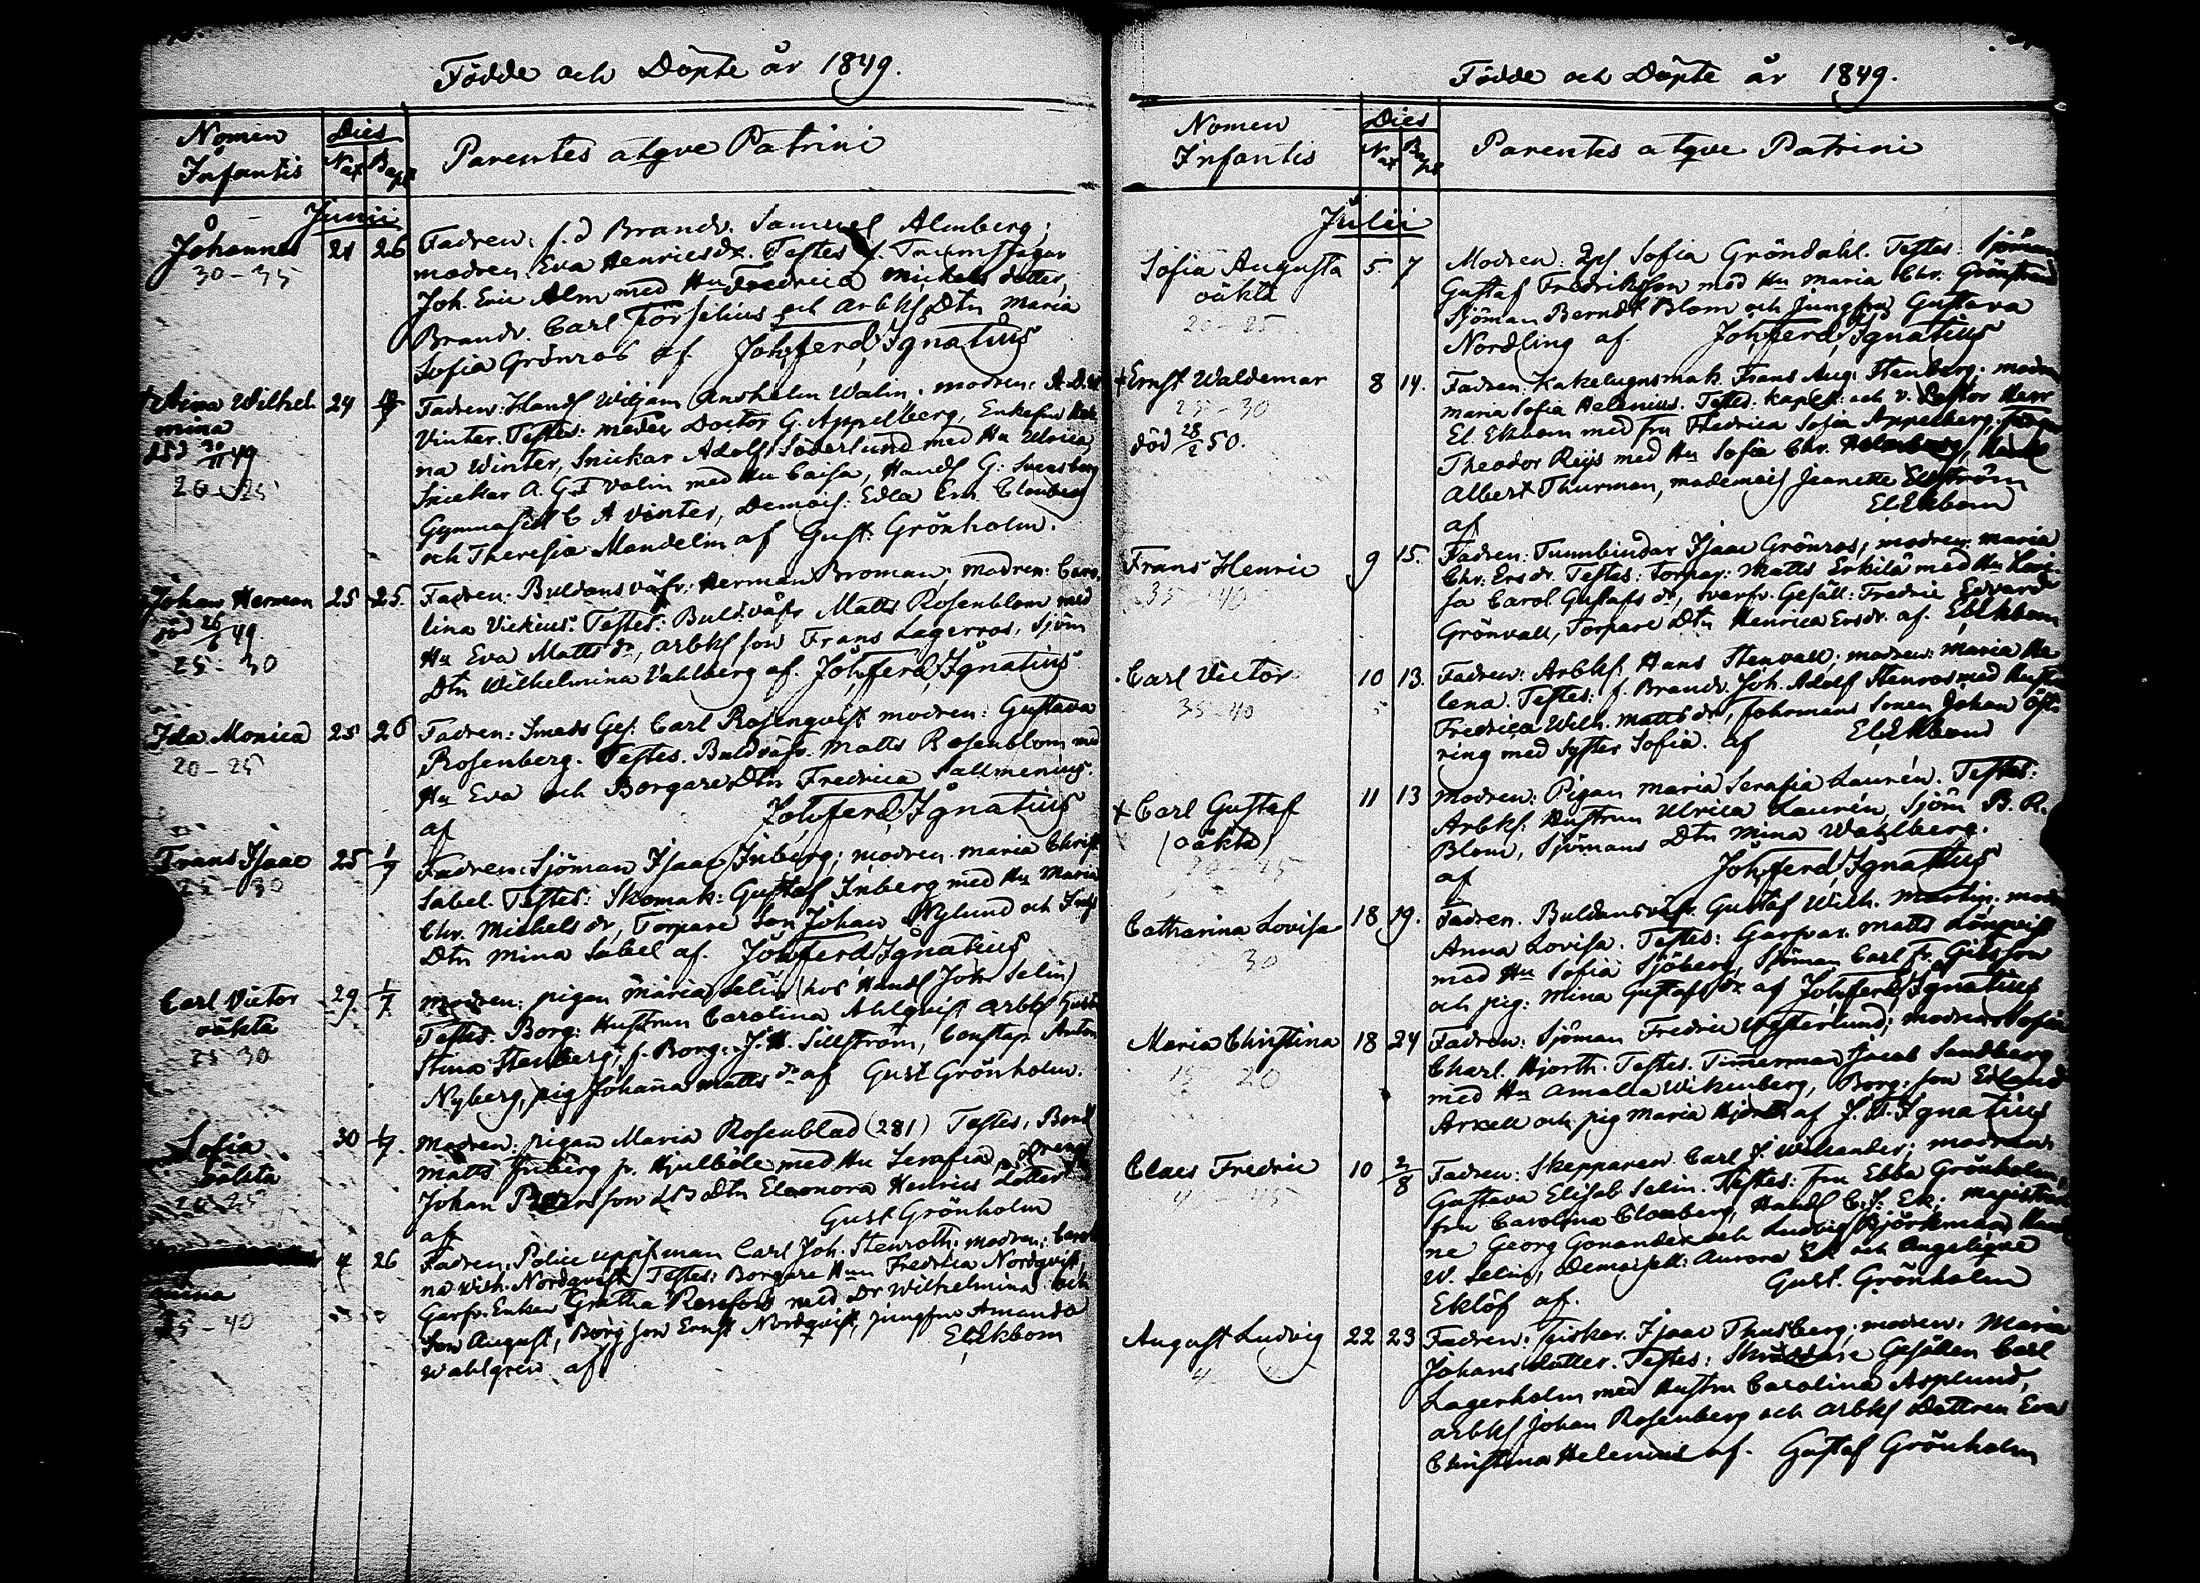 Födde och Döpte år 1849.
Nomen Infantis
Dies
Nat Bapt
Parentes atqve Patrini
Junii
Johannes
30-35
21 26
Fadren: f.d Brandv. Samuel Almberg;
modren Eva Henricsdr. Testes f.
Joh. Eric Alm med Hu Fredrica Michels dotter,
Brandv. Carl Forselius och arbks Dtn Maria
Sofia Grönroos af. Joh. ferd. Ignatius
Wilhel
mina
död 30/11 49
20-25
24
Fadren: Handl Wiljam Anshelm Walin. modren:
Vinter. Testes: Doctor G. Appelberg, Enkefru
na Winter, Snickar Adolf Söderlund med Hu Ulrica,
Snickar A. Gst Valin med Hu Caisa, Handl G: Svensberg
Gymnasist C A Vinter, Demois: Edla Em. Clouberg
och Theresia Mandelin af Gust. Grönholm.
Johan Herman
död 26/6 49.
25-30
25 25.
Fadren: Buldansväfv: Herman Broman; modren: Caro-
lina Vickius. Testes: Buldväfv Matts Rosenblom med
Hu Eva Matts dr, arbks son Frans Lagerros, Sjöm
Dtn Wilhelmina Vahlberg af. Joh. ferd. Ignatius
Ida Monica
20-25
25 26
Fadren: Smeds Ges. Carl Rosenqvist modren: Gustava
Rosenberg. Testes. Buldväfv. Matts Rosenblom med
Hu Eva och Borgare Dtn Fredrica Sallmenius.
af Joh. ferd. Ignatius
Frans Isaac
25-30
25 1/7
Fadren: Sjöman Isaac Inberg; modren Maria Christ
Sabel. Testes: Skomak: Gustaf Inberg med Hu Maria
Chr. Michels dr, Torpare Son Johan Nylund och
Dtn Mina Sabel af. Joh. ferd. Ignatius
Carl Victor
oäkta
25 30
29. 1/7
Modren: pigan Maria Selin (hos Handl Joh Selin)
Testes. Borg: Hustrun Carolina Ahlqvist arbks
Stina Stenberg, f. Borg: J. H. Sillström, Anton
Nyberg, pig Johana Matts dr af Gust Grönholm.
Sofia
oäkta
20-25
30 1/7.
Modren: pigan Maria Rosenblad (281) Testes, Bond
Matts Inberg fr. Hjulböle med Hu Serafia, dreng
Johan Petersson Dtn Eleonora Henrics dotter
af Gust Grönholm
mina
35-40
4 26
Fadren: Police uppsman Carl Joh. Stenroth: modren: Caroli
na Wilh. Nordqvist Testes: Borgare Hun Fredrica Nordqvist,
Garfv. Enkan Gretha med Dr Wilhelmina och
Son August, Borg son Ernst Nordqvist, jungfru Amanda
Wahlgren af El. Ekbom
Födde och Döpte år 1849.
Nomen Infantis
Dies
Nat Bapt
Parentes atqve Patrini
Julii
Sofia Augusta
oäkta
20-25
5. 7
Modren: Sofia Gröndahl. Testes: Sjöman
Gustaf Fredriksson med Hu Maria Chr. Grönstrand
Sjöman Berndt Blom och Jungfru Gustava
Nordling af. Joh. ferd. Ignatius
+Ernst Waldemar
25-30
död 28/2 50.
8 14.
Fadren: Kakelugnsmak. Frans Aug. Stenberg. modren
Maria Sofia Helenius. Testes. kapell: och v. Pastor Herr
El. Ekbom med fru Fredrica Sofia Appelberg,
Theodor Reijs med Hu Sofia Chr.
Albert Thurman, mademois Jeanette
af El. Ekbom
Frans Henric
35 40
9 15.
Fadren: Tunnbindar Isaac Grönros; modren Maria
Chr. Ersdr. Testes: Torpar: Matts Erkilä med Hu Lovi-
sa Carol Gustafs dr, svarfv. Gesäll: Fredric Edvard
Grönvall, Torpare Dtn Henrica Ersdr. af. El. Ekbom
Carl Victor
35-40
10 13.
Fadren: Arbks. Hans Stenvall; modren: Maria He
lena. Testes: f. Brandv. Joh. Adolf Stenroos med Hustru
Fredrica Wilh. Matts dr, fohrmans Sonen Johan
ring med Syster Sofia. af El. Ekbom
+ Carl Gustaf
(oäkta)
20-25
11 13
Modren: Pigan Maria Serafia Laurén. Testes:
Arbks: Hustrun Ulrica Laurén, Sjöm B. R.
Blom, Sjömans Dtn Mina Wahlberg.
af Joh. ferd. Ignatius
Catharina Lovisa
30
18 19.
Fadren. Buldansväfv. Gustaf Wilh. Martin. modr
Anna Lovisa. Testes: Garfvar. Matts Lönqvist
med Hu Sofia Sjöberg, Sjöman Carl Fr.
och pig: Mina Gustafs dr af Joh. ferd. Ignatius
Maria Christina
15 20
18 24
Fadren: Sjöman Fredric Wästerlund; modren Sofia
Charl. Hjorth. Testes. Timerman Jacob Sandberg
med Hu Amalia Wikenberg, Borg. son Erland
Arkell och pig Maria Hjorth af J. F. Ignatius
Claes Fredric
40-45
10 2/8
Fadren: Skepparen Carl F. Wikander; modren
Gustava Elisab Selin. Testes: fru Ebba Grönholm,
fru Carolina Clouberg, Handl C. F. Ek; magistrar
ne Georg Gonander och Ludvig Björkman,
W. Selin, Demoisell: Aurora Ek och Angeliqve
Eklöf af. Gust. Grönholm
August Ludvig
22 23
Fadren: fiskar. Isaac Thusberg; modren: Maria
Johans dotter. Testes: Skräddare Gesällen Carl
Lagerholm med Hustru Carolina Asplund,
arbks Johan Rosenberg och arbks Dottren Eva
Christina Helenius af. Gustaf Grönholm